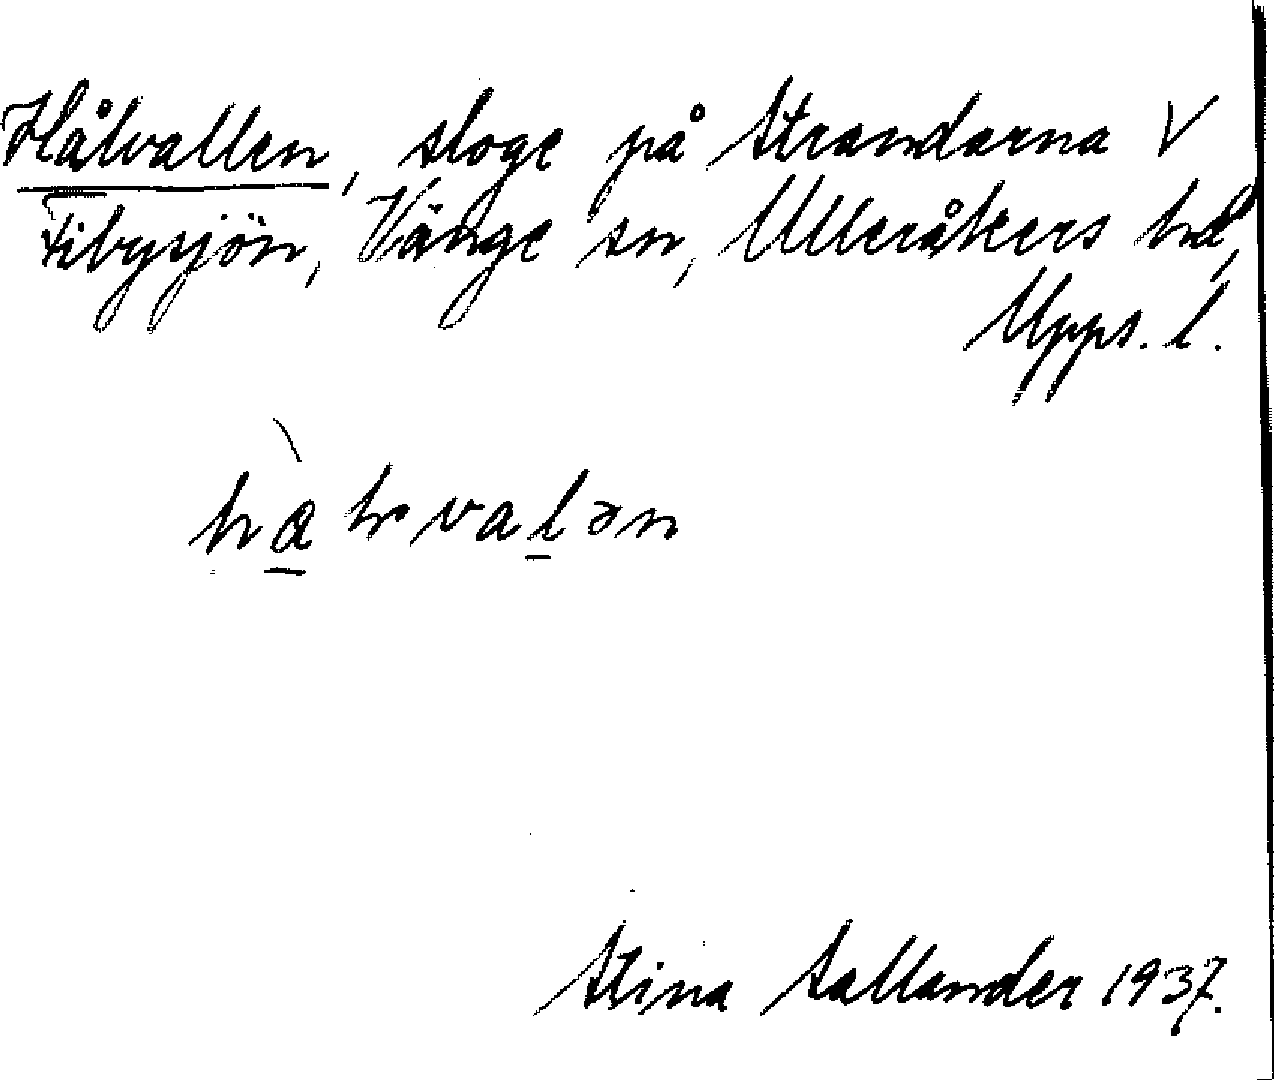 Hålvallen, sloge på Strandarna V
Fibysjön, Vänge sn, Ulleråkers hd,
Upps. l.
Stina Sallander 1937.